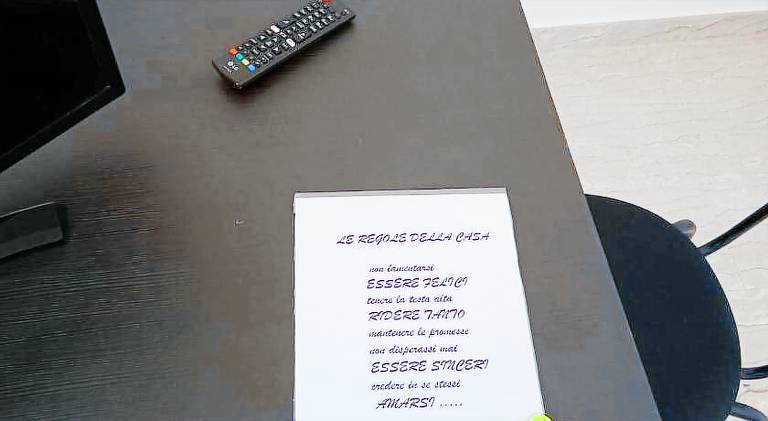 LE REGOLE DELLA CASA
non lamentarsi
ESSERE FELICI
tenere la testa alta
RIDERE TANTO
mantenere le promesse
non disperassi mai
ESSERE SINCERI
credere in se stessi
AMARSI .....